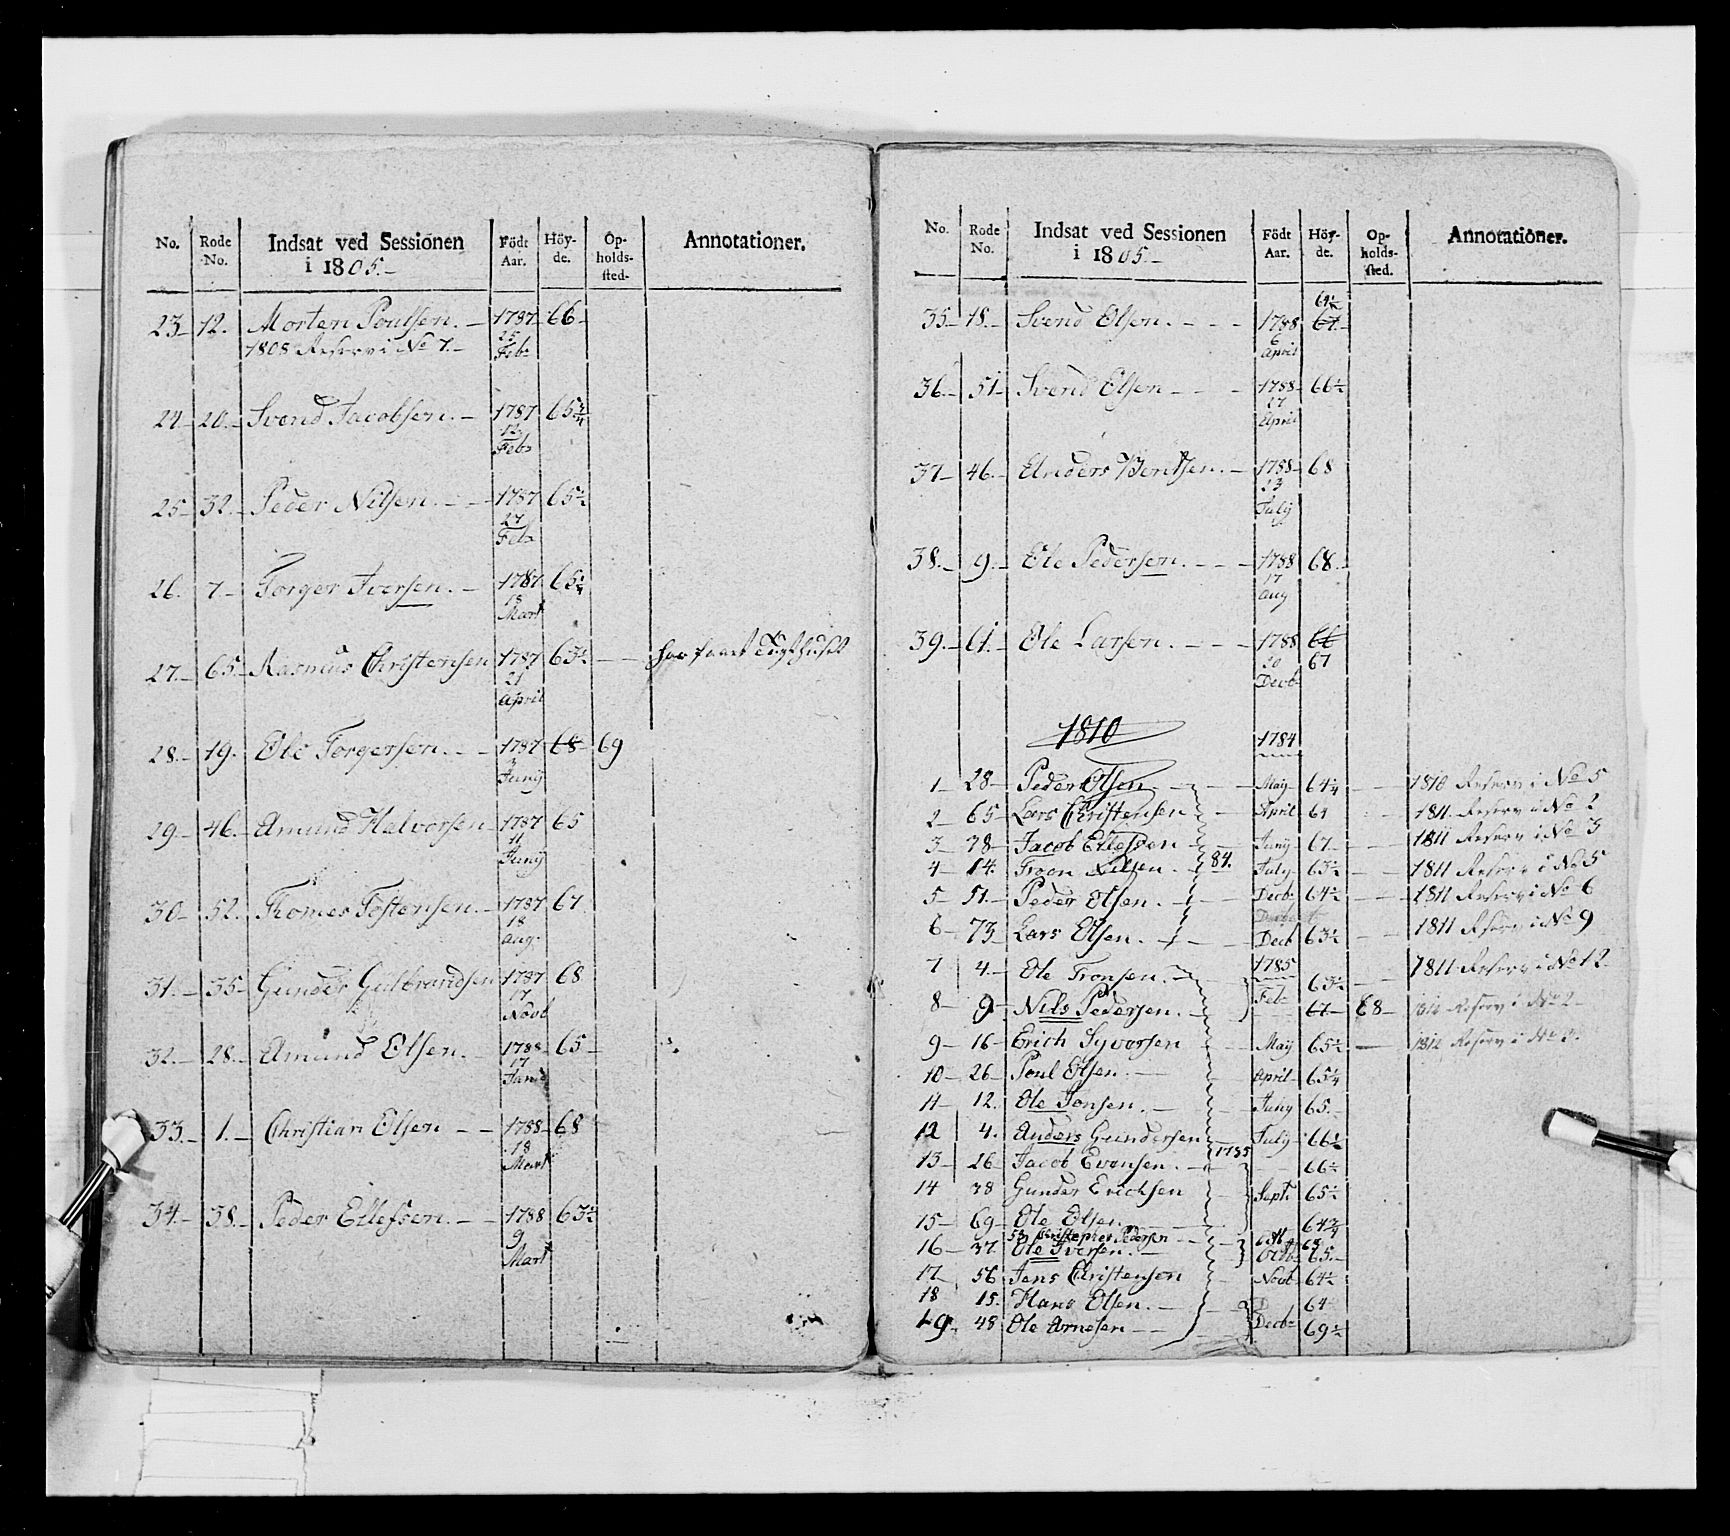 No. Rode No. Indsat ved Sessionen i 1805.- Födt Aar. Höyde. Opholdssted. Annotationer.
23- 12. Morten Poulsen. - 1787 66-
1808 Reserv i No 7.- 25 Feb:
24- 20.- Svend Jacobsen.- 1787 65 3/4
12 Feb:
25- 32.- Peder Nilsen. - - 1787 65 1/2
27 Feb:
26. 7- Torger Iversen. - 1787 65 1/4
18 Mart
27.- 65- Rasmus Christensen 1787 63 1/2 -
21 April
28.- 19. Ole Torgersen. - - 1787 68- 69
Juny
29- 46- Amund Halvorsen 1787 65
11 Juny
30- 52. Thomes Tostensen. - 1787 67
18 Aug.
31.- 35- Gunder Gulbrandsen 1787 68
17 Novb
32.- 28.- Amund Olsen. - 1788 65-
17 Janu
33.- 1.- Christian Olsen - - 1788 68
18 Mart
34.- 38.- Peder Ellefsen. - - 1788 63 1/2
9 Mart
No. Rode No. Indsat ved Sessionen i 1805- Födt Aar. Höyde. Opholdssted. Annotationer.
35- 18. Svend Olsen. - - - 1788 67-
6 April
36.- 51- Svend Olsen - - - 1788 66 1/2
27 April
37- 46. Anders Bentsen. - 1788 68
23 July
38.- 9.- Ole Pedersen. - - - 1788 68.-
17 Aug
39.- 61. Ole Larsen. - - - 1788 66
20 Decb: 67
1810 1784
1- 28- Peder Olsen - - May 64 1/4 - - 1810 Reserv i No 5
2- 65- Lars Christensen - April 61 1811. Reserv i No 2
3- 38- Jacob Ellefsen - Juny 67- - 1811 Reserv i No 3
4- 14. Tron Nilsen. - 84. July 63 1/2 - - 1811 Reserv i No 5
5- 51.- Peder Olsen. - - Decb: 64 1/2 - - 1811 Reserv i No 6
6- 73 Lars Olsen. - - Decb 63 1/2 - - 1811 Reserv i No 9
7 4.- Ole Tronsen. - 1785 63 1/2 - - 1811 Reserv i No 12
8- 9- Nils Pedersen. - Feb: 67- 68- 1812 Reserv i No 2-
9- 16- Erich Syversen - May 65 1/2 - 1812 Reserv i No
10- 26- Poul Olsen. - April 65 1/4
11- 12. Ole Jonsen. - Juny 65.-
12 4. Anders Gundersen July 66 1/2
13- 26- Jacob Evensen. - 1785 66 1/2
14 38 Gunder Erichsen Sept: 65 1/2
15- 69- Ole Olsen - 64 3/4
53 Christopher Pedersen
16- 37. Ole Iversen. - Octb: 65.-
17- 56 Jens Christensen Novb 64 1/2
18 15. Hans Olsen. - 64
19- 48 Ole Arnesen - - Decb: 69 1/2